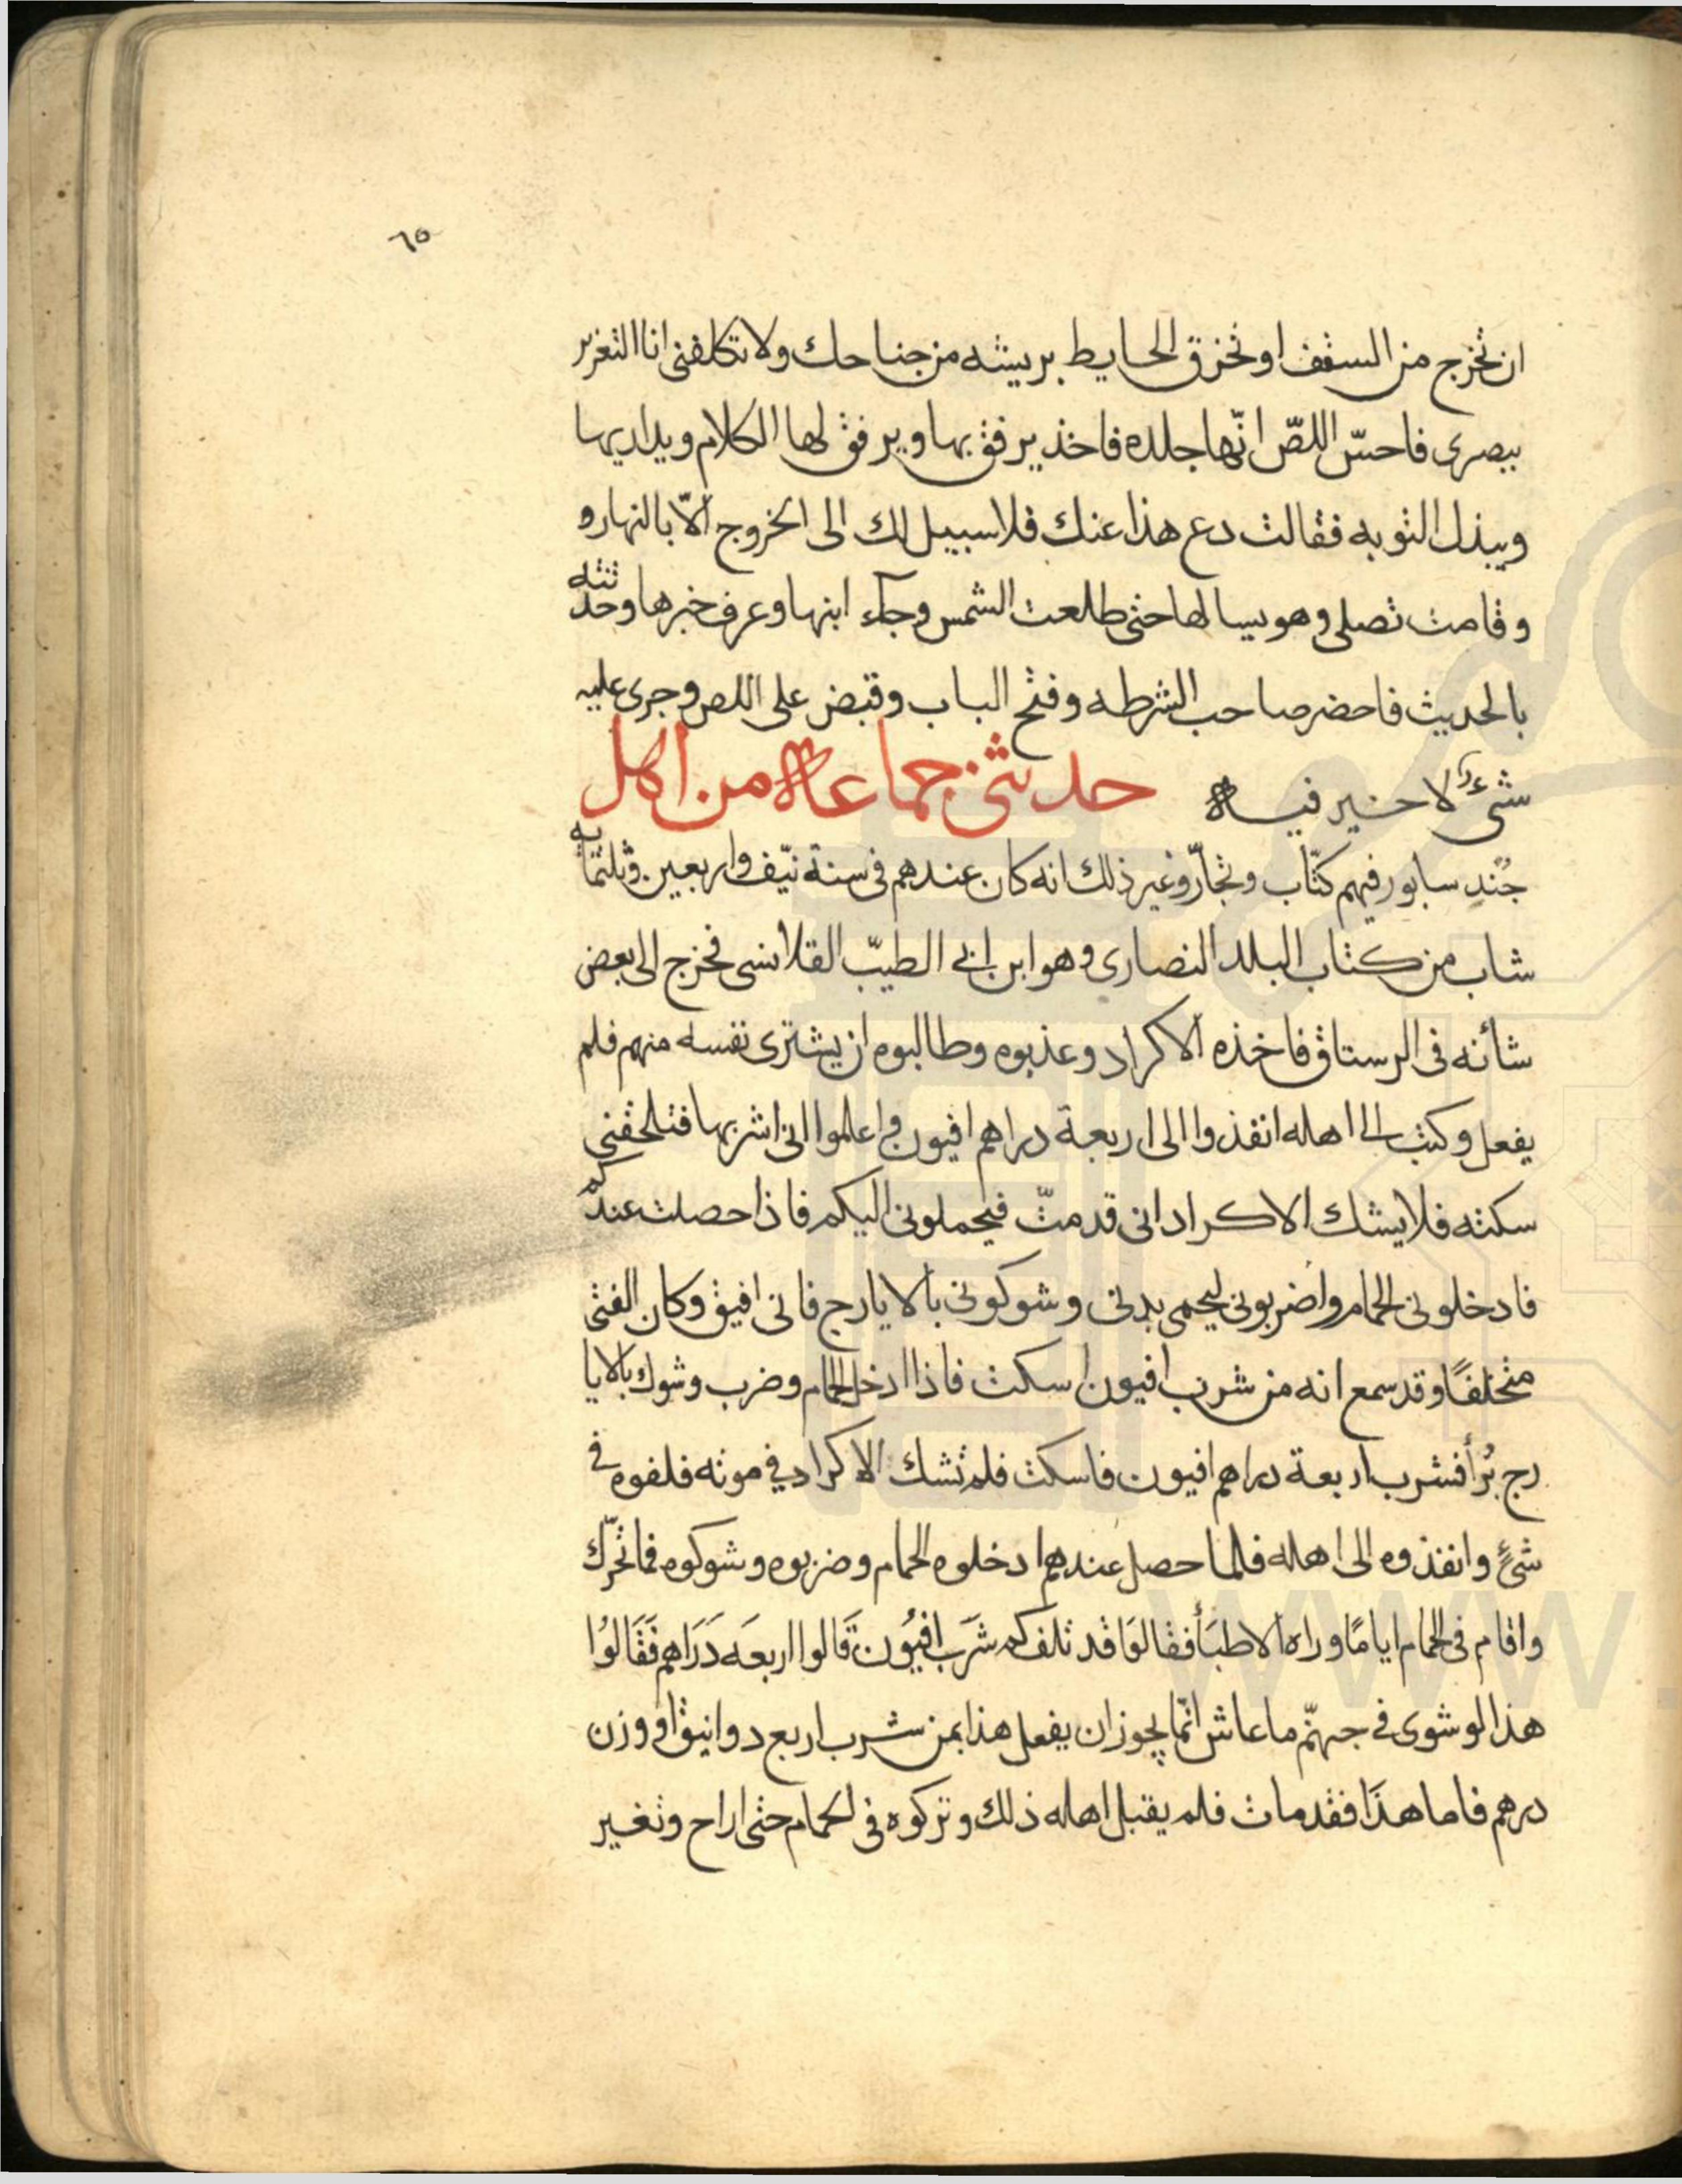 ٦٥
ان تخرج من السقف او تخرق الحايط بريشه من جناحك ولا تكلفنى انا التغرير
ببصرى فاحسّ اللصّ انّها جلده فاخذ يرفق بها ويرفق لها الكلام ويداريها
ويبذل التوبه فقالت دع هذا عنك فلا سبيل لك الى الخروج الّا بالنهار و
وقامت تصلى وهو يسالها حتى طلعت الشمس وجآء ابنها وعرف خبرها وحدثته
بالحديث فاحضر صاحب الشرطه وفتح الباب وقبض على اللص وجرى عليه
شىء لا خير فيه حدثنى جماعة من اهل
جُندِ سابور فيهم كتّاب وتجّار وغير ذلك انه كان عندهم فى سنة نيّف واربعين وثلثمايه
شاب من كتاب البلد النصارى وهو ابن ابى الطيّب القلانسى فخرج الى بعض
شانه فى الرستاق فاخذه الاكراد وعذبوه وطالبوه ان يشترى نفسه منهم فلم
يفعل وكتب الى اهله انفذوا الى اربعة دراهم افيون واعلموا انى اشربها فتلحقنى
سكته فلا يشك الاكراد انى قد متّ فيحملونى اليكم فاذا حصلت عندكم
فادخلونى الحمام واضربونى ليحمى بدنى وشوكونى بالايارج فانى افيق وكان الفتى
متخلفًا وقد سمع انه من شرب افيون اسكت فاذا ادخل الحمام وضرب وشوك بالايا
رج بُرأ فشرب اربعة دراهم افيون فاسكت فلم تشك الاكراد فى موته فلفوه فى
شىءٍ وانفذوه الى اهله فلما حصل عندهم ادخلوه الحمام وضربوه وشوكوه فما تحرّك
واقام فى الحمام اياما وراه الاطبَأ فقالوا قد تلف كم شَرَب افيُون قَالوا اربعَه دَرَاهم فَقَالوُا
هذا لو شوى فى جهنّم ما عاش انّما يجوز ان يفعل هذا بمن شرب اربع دوانيق او وزن
درهم فاما هذَا فقد مات فلم يقبل اهله ذلك وتركوه فى الحمام حتى اراح وتغير
www.